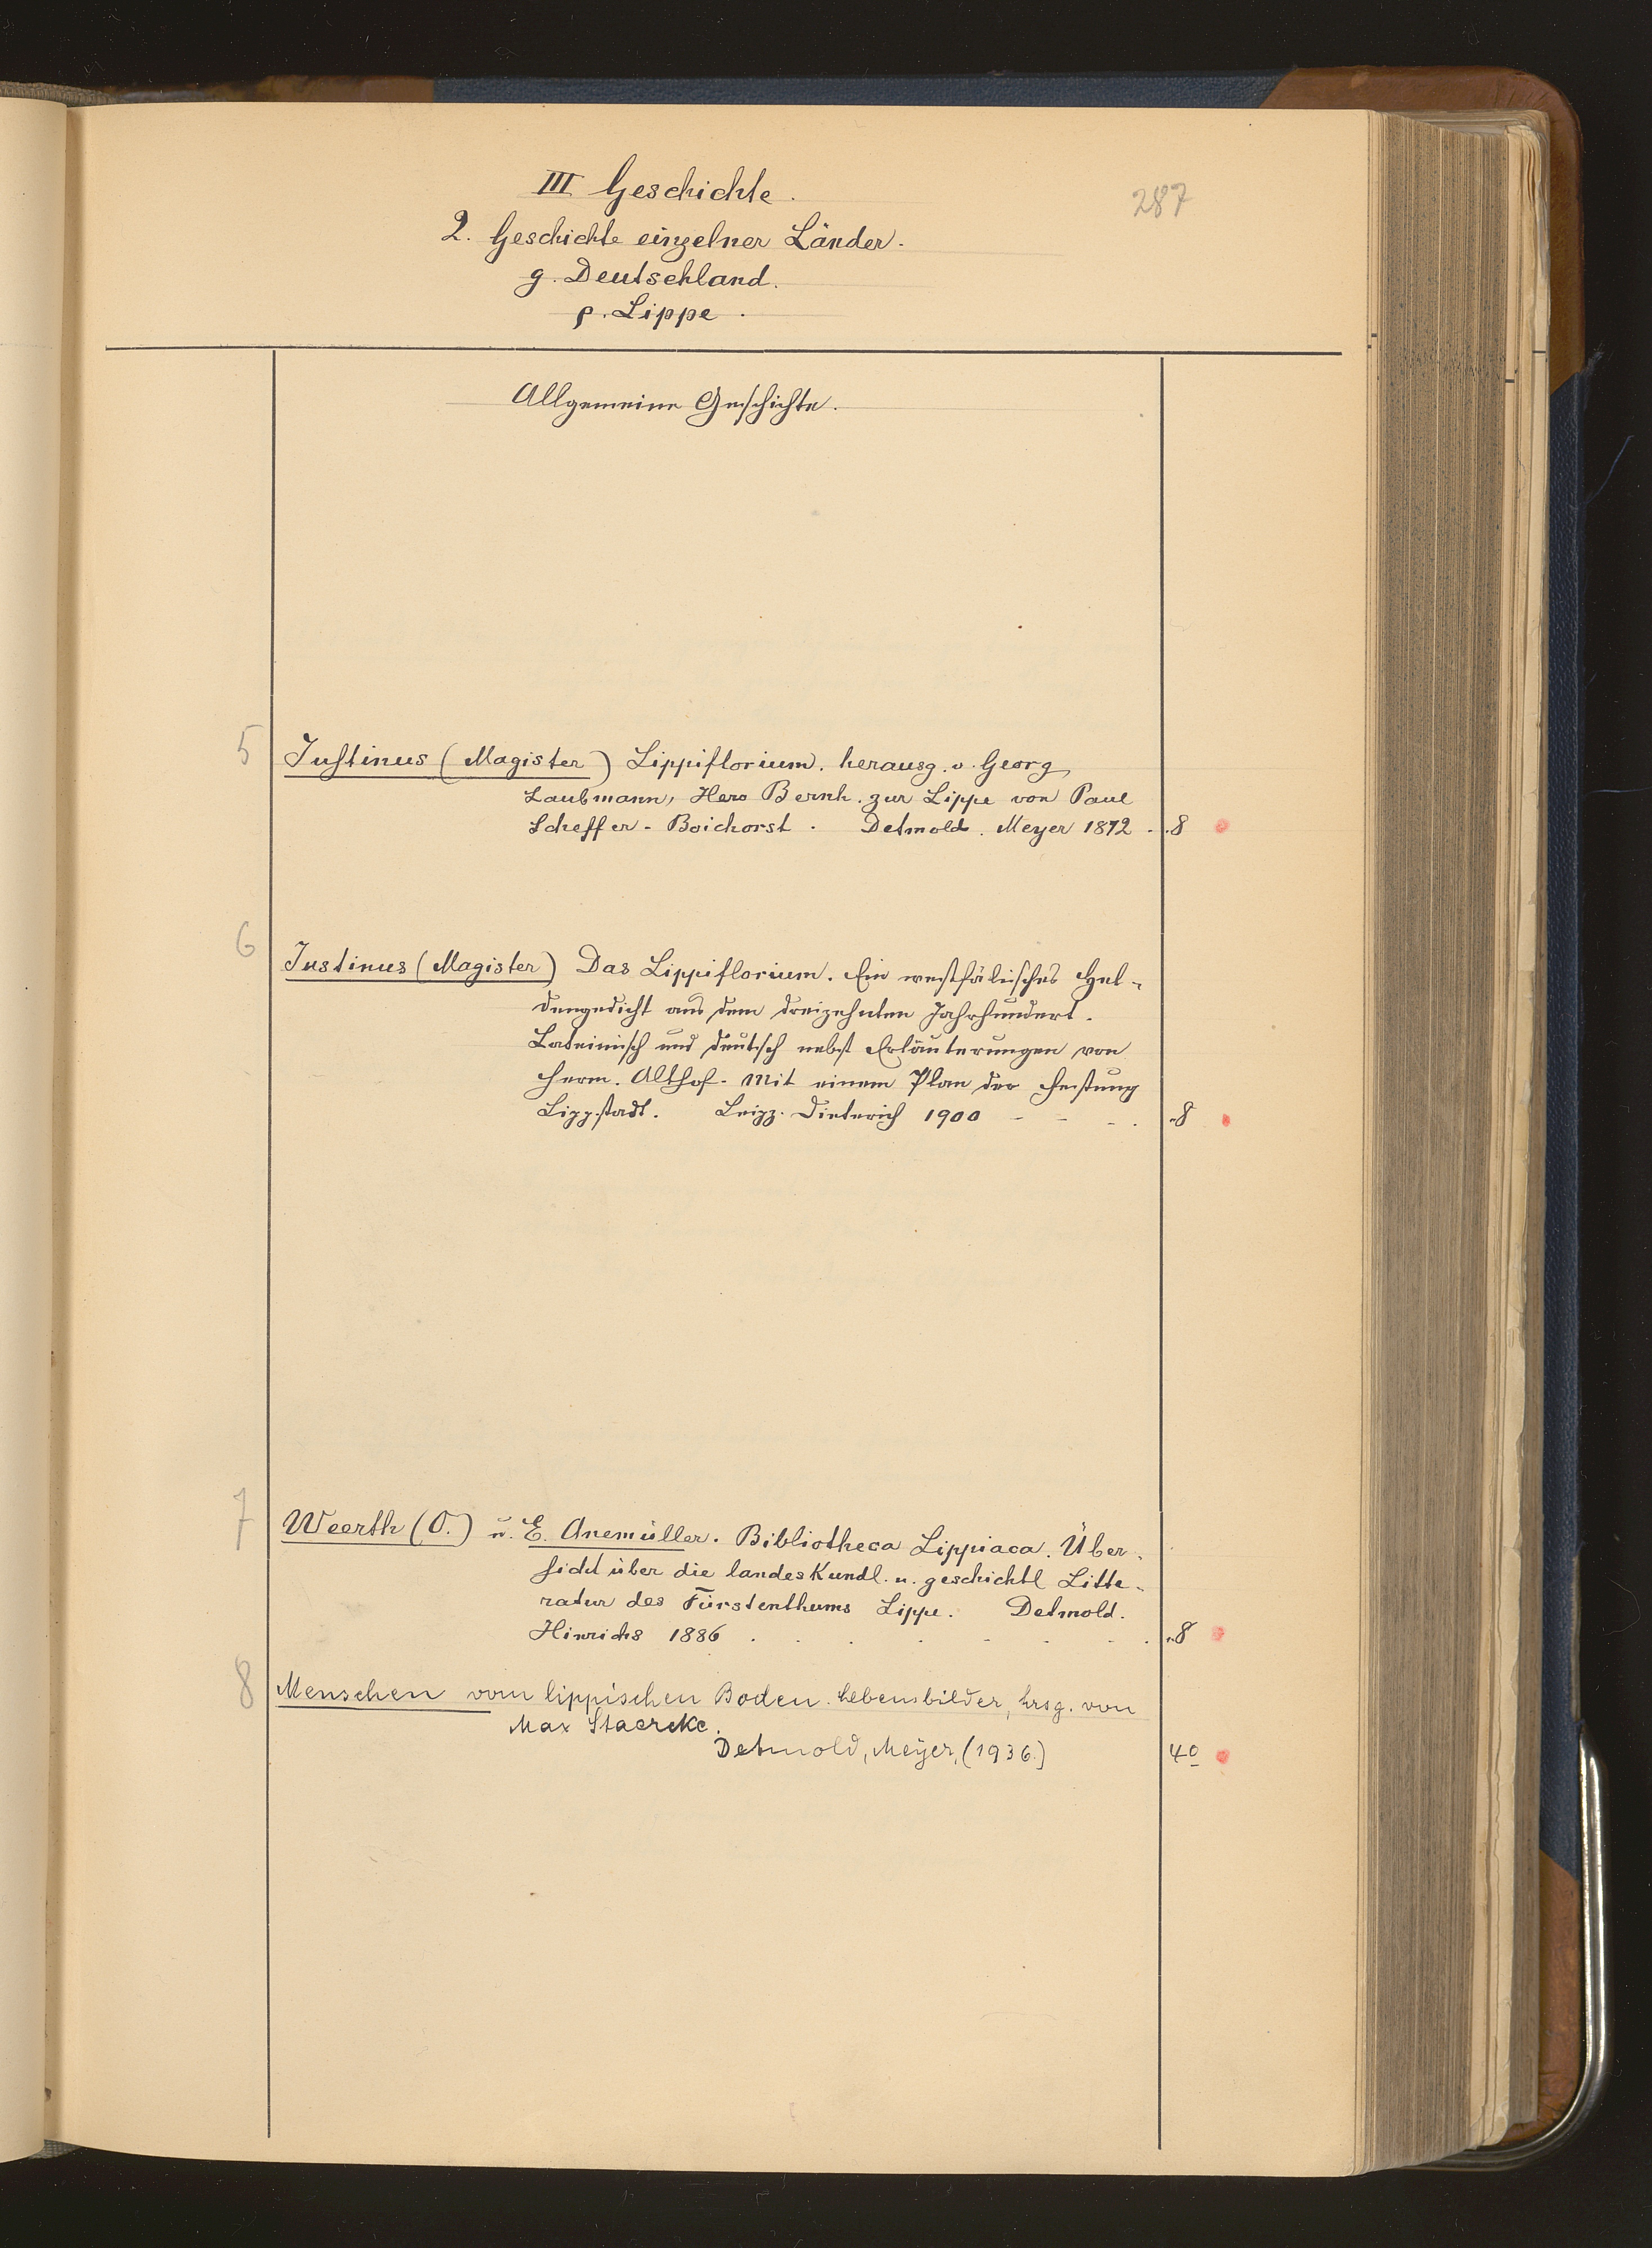 III Geschichte.
287
2. Geschichte einzelner Länder.
g. Deutschland.
ρ. Lippe.
Allgemeine Geschichte.
5
Justinus (Magister) Lippiflorium. herausg. v. Georg
Laubmann, Herr Bernh. zur Lippe von Paul
Scheffer-Boichorst. Detmold. Meyer 1872 . . 8
6
Justinus (Magister) Das Lippiflorium. Ein westfälisches Hel-
dengedicht aus dem dreizehnten Jahrhundert.
Lateinisch und deutsch nebst Erläuterungen von
Herm. Althof. Mit einem Plan der Festung
Lippstadt. Leipz. Dieterich 1900 - - - . . 8
7
Weerth (O.) u. E. Anemüller. Bibliotheca Lippiaca. Über-
sicht über die landeskundl. u. geschichtl Litte-
ratur des Fürstenthums Lippe. Detmold.
Hinrichs 1886 . . . . . . . . 8
8
Menschen vom lippischen Boden. Lebensbilder, hrsg. von
Max Staercke.
Detmold, Meyer, (1936.) 4°